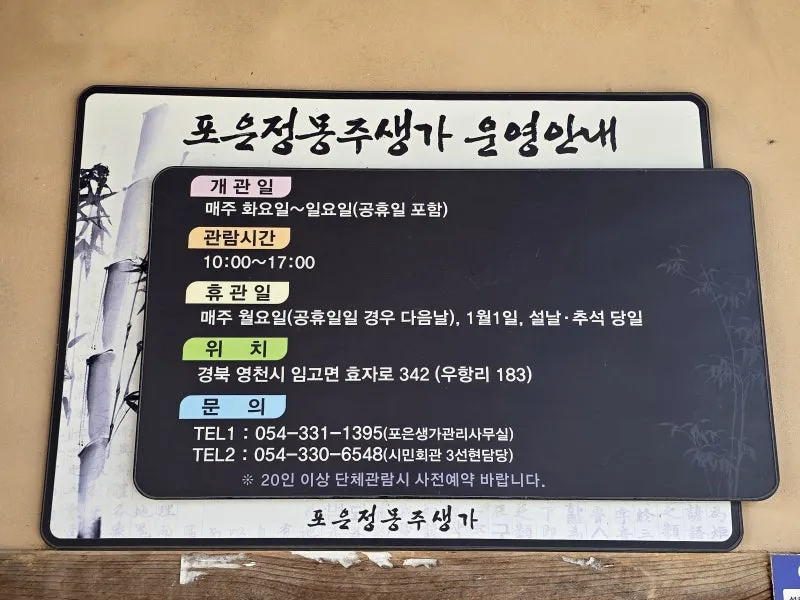 포은정몽주생가 운영안내
개관일
매주 화요일~일요일(공휴일 포함)
관람시간
10:00~17:00
휴관일
매주 월요일(공휴일일 경우 다음날), 1월1일, 설날·추석 당일
위 치
경북 영천시 임고면 효자로 342 (우항리 183)
문 의
TEL1 : 054-331-1395(포은생가관리사무실)
TEL2 : 054-330-6548(시민회관 3선현담당)
※ 20인 이상 단체관람시 사전예약 바랍니다.
포은정몽주생가